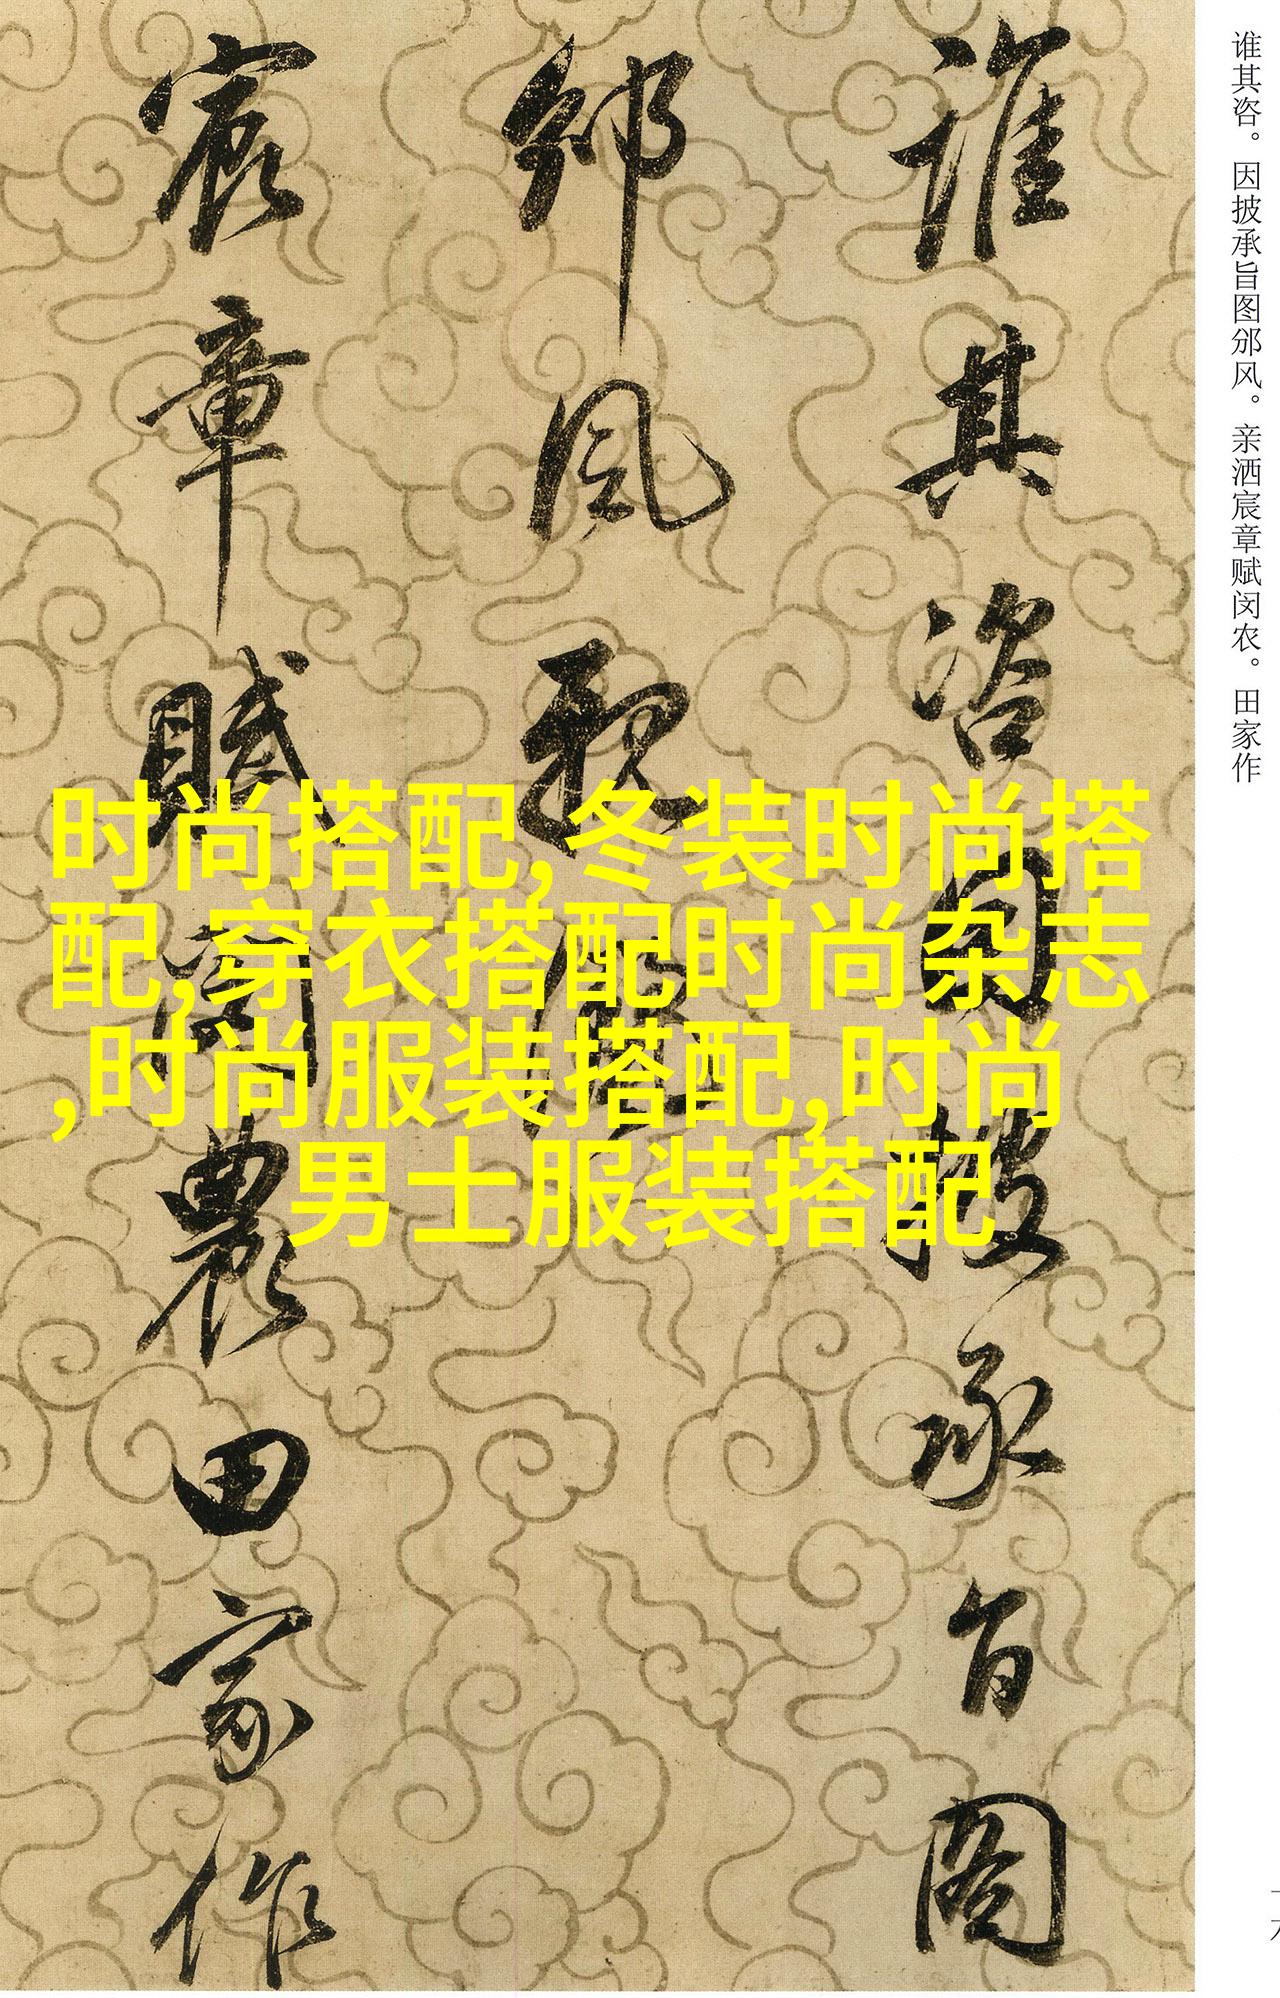 谁其咨。因披承旨图邠风。亲洒宸章赋闵农。田家作
誰其咨因披承旨圖
邠風親洒
宸章賦閔農田家作
时尚搭配,冬装时尚搭
配,穿衣搭配时尚杂志
,时尚服装搭配,时尚
男士服装搭配